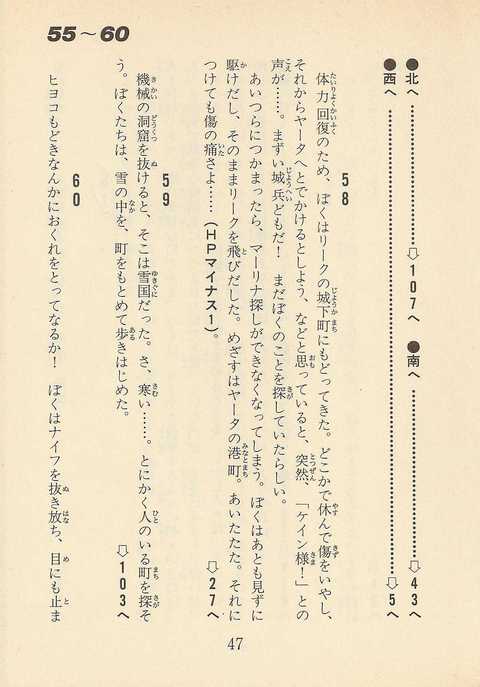 55〜60
●北へ……………………⇨107へ ●南へ……………………⇨43へ
●西へ………………………………………………⇨5へ
58
体力回復のため、ぼくはリークの城下町にもどってきた。どこかで休んで傷をいやし、
それからヤータへとでかけるとしよう、などと思っていると、突然、「ケイン様！」との
声が……。まずい城兵どもだ！ まだぼくのことを探していたらしい。
あいつらにつかまったら、マーリナ探しができなくなってしまう。ぼくはあとも見ずに
駆けだし、そのままリークを飛びだした。めざすはヤータの港町。あいたたた。それに
つけても傷の痛さよ……（HPマイナス1）。
⇨27へ
59
機械の洞窟を抜けると、そこは雪国だった。さ、寒い……。とにかく人のいる町を探そ
う。ぼくたちは、雪の中を、町をもとめて歩きはじめた。
⇨103へ
60
ヒヨコもどきなんかにおくれをとってなるか！ ぼくはナイフを抜き放ち、目にも止ま
47